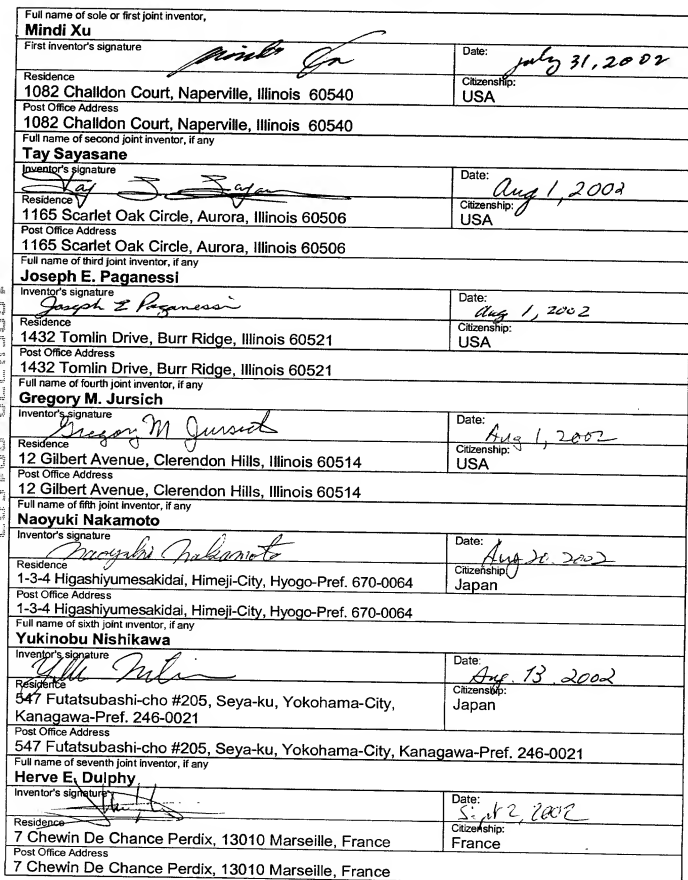 Full name of sole or first joint inventor,
Mindi Xu
First inventor's signature
Date: July 31, 2002
Residence
1082 Challdon Court, Naperville, Illinois 60540
Citizenship:
USA
Post Office Address
1082 Challdon Court, Naperville, Illinois 60540
Full name of second joint inventor, if any
Tay Sayasane
Inventor's signature
Date: Aug 1, 2002
Residence
1165 Scarlet Oak Circle, Aurora, Illinois 60506
Citizenship:
USA
Post Office Address
1165 Scarlet Oak Circle, Aurora, Illinois 60506
Full name of third joint inventor, if any
Joseph E. Paganessi
Inventor's signature
Joseph E Paganessi
Date: Aug 1, 2002
Residence
1432 Tomlin Drive, Burr Ridge, Illinois 60521
Citizenship:
USA
Post Office Address
1432 Tomlin Drive, Burr Ridge, Illinois 60521
Full name of fourth joint inventor, if any
Gregory M. Jursich
Inventor's signature
Gregory M Jursich
Date: Aug 1, 2002
Residence
12 Gilbert Avenue, Clerendon Hills, Illinois 60514
Citizenship:
USA
Post Office Address
12 Gilbert Avenue, Clerendon Hills, Illinois 60514
Full name of fifth joint inventor, if any
Naoyuki Nakamoto
Inventor's signature
Naoyuki Nakamoto
Date: Aug 20. 2002
Residence
1-3-4 Higashiyumesakidai, Himeji-City, Hyogo-Pref. 670-0064
Citizenship
Japan
Post Office Address
1-3-4 Higashiyumesakidai, Himeji-City, Hyogo-Pref. 670-0064
Full name of sixth joint inventor, if any
Yukinobu Nishikawa
Inventor's signature
Date: Aug. 13. 2002
Residence
547 Futatsubashi-cho #205, Seya-ku, Yokohama-City,
Kanagawa-Pref. 246-0021
Citizenship:
Japan
Post Office Address
547 Futatsubashi-cho #205, Seya-ku, Yokohama-City, Kanagawa-Pref. 246-0021
Full name of seventh joint inventor, if any
Herve E. Dulphy
Inventor's signature
Date: Sept 2, 2002
Residence
7 Chewin De Chance Perdix, 13010 Marseille, France
Citizenship:
France
Post Office Address
7 Chewin De Chance Perdix, 13010 Marseille, France